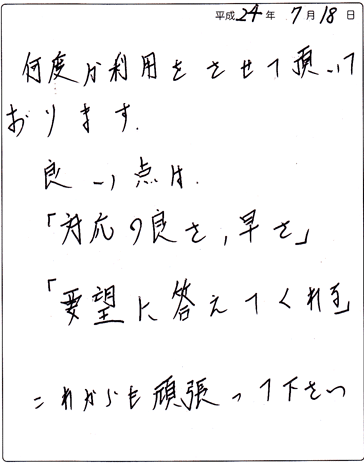 平成24年 7月18日
何度か利用をさせて頂いて
おります.
良い点は.
「対応の良さ,早さ」
「要望に答えてくれる」
これからも頑張って下さい